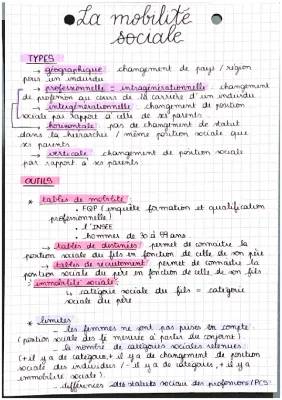 La mobilité
sociale
TYPES
→ géographique : changement de pays / région
pour un individu
→ professionnelle = intragénérationnelle : changement
de profession au cours de la carrière d'un individu
→ intergénérationnelle : changement de position
sociale par rapport à celle de ses parents
→ horizontale : pas de changement de statut
dans la hiérarchie / même position sociale que
ses parents
→ verticale : changement de position sociale
par rapport à ses parents
OUTILS
* tables de mobilité :
• FQP (enquête formation et qualification
professionnelle)
• l'INSEE
• hommes de 30 à 59 ans
→ tables de destinées : permet de connaître la
position sociale du fils en fonction de celle de son père
→ tables de recrutement : permet de connaître la
position sociale du père en fonction de celle de son fils
immobilité sociale :
↳ catégorie sociale du fils = catégorie
sociale du père
* limites :
- les femmes ne sont pas prises en compte
(position sociale des ♀ mesurée à partir du conjoint)
- le nombre de catégories sociales retenues :
(+ il y a de catégories, + il y a de changement de position
sociale des individus / - il y a de catégories, + il y a
immobilité sociale)
- différences des statuts sociaux des professions / PCS